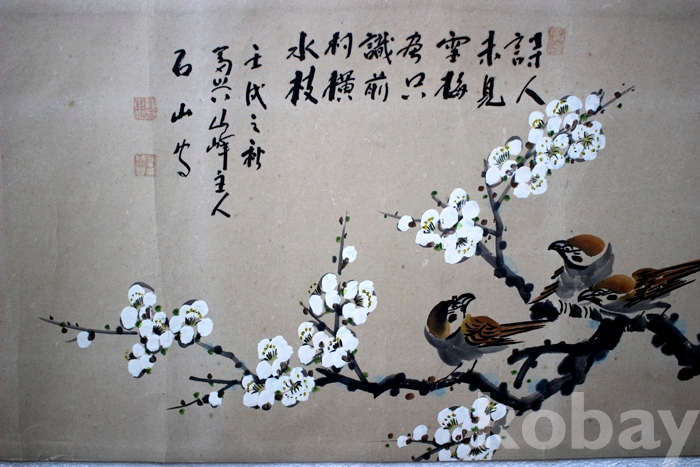 人
未見
雪梅
只
識前
村橫
水枝
壬戌之秋
山峰主人
石山
kobay